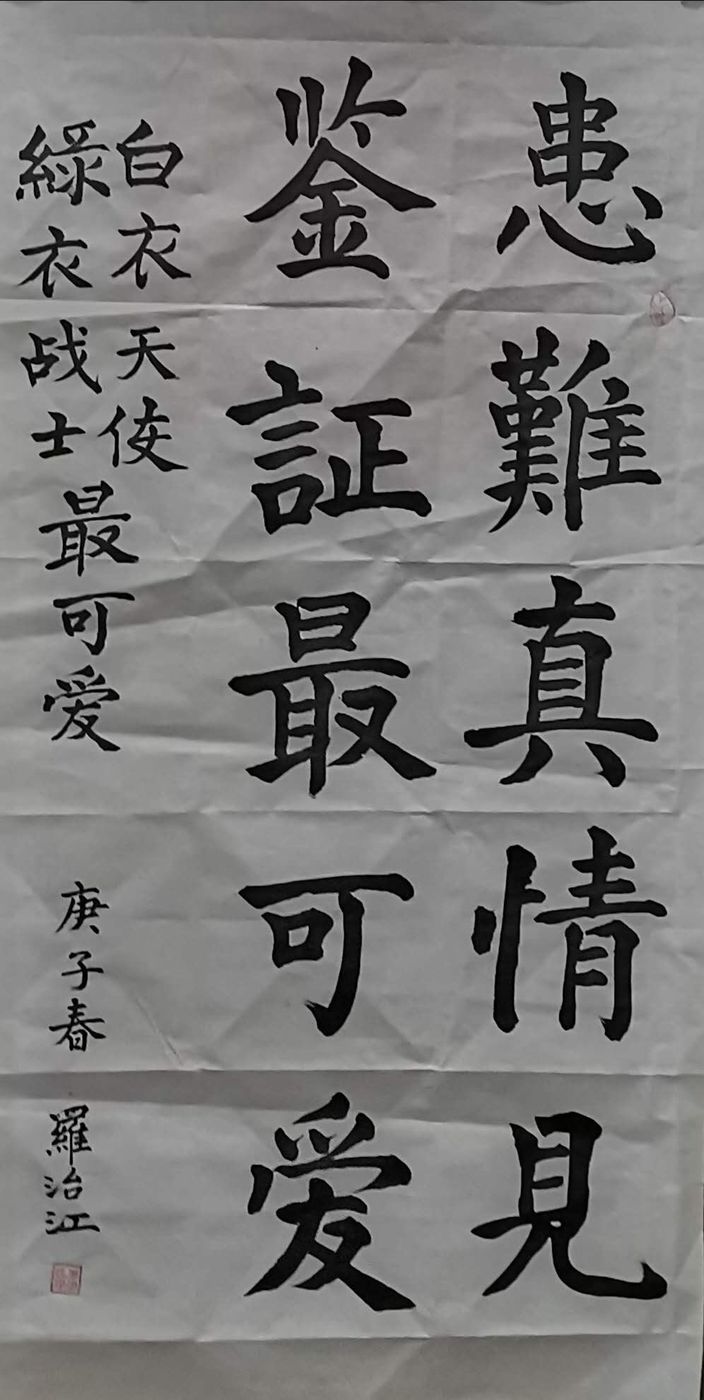 患難真情見
鉴証最可爱
白衣天使
綠衣战士
最可爱
庚子春
羅治江